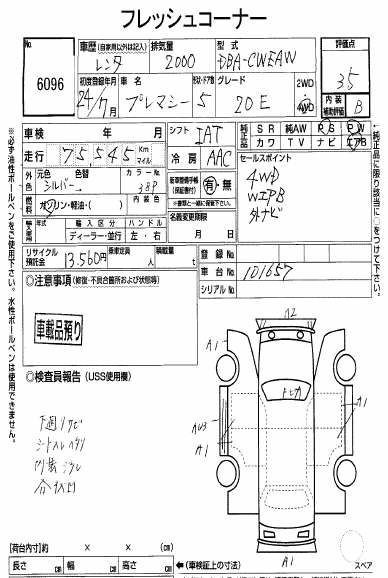 フレッシュコーナー
No. 6096
車歴(自家用以外は記入) レンタ
排気量 2000
型式 DBA-CWEAW
評価点 3.5
初度登録年月 24/7月
車名 プレマシー
形状・ドア数 5
グレード 20E
2WD
4WD
内装補助評価 B
車検 年 月
シフト IAT
純正品 SR 純AW PS PW
カワ TV ナビ エアB
走行 75545 Km マイル
冷房 AAC
セールスポイント
4WD
WエアB
外ナビ
外色 元色 シルバー 色替 カラーNo. 38P
新車整備手帳(保証書付) 有・無
燃料 ガソリン・軽油・( ) 内装色
名義変更期限 月 日
年式 輸入区分 ディーラー・並行 ハンドル 左・右
リサイクル預託金 13,560円 乗車定員 人 積載量 t
登録No.
車台No. 101657
シリアルNo.
※必ず油性ボールペンをご使用下さい。水性ボールペンは使用できません。
純正品に限り該当に○をつけて下さい。
◎注意事項(修復・不具合箇所および状態等)
車載品預り
◎検査員報告(USS使用欄)
下廻りサビ
A2
A1
トビカ
A1
AU3
A1
A1
(荷台内寸)約 × × (cm)
長さ cm 幅 cm 高さ cm
←(車検証上の寸法)
スペア